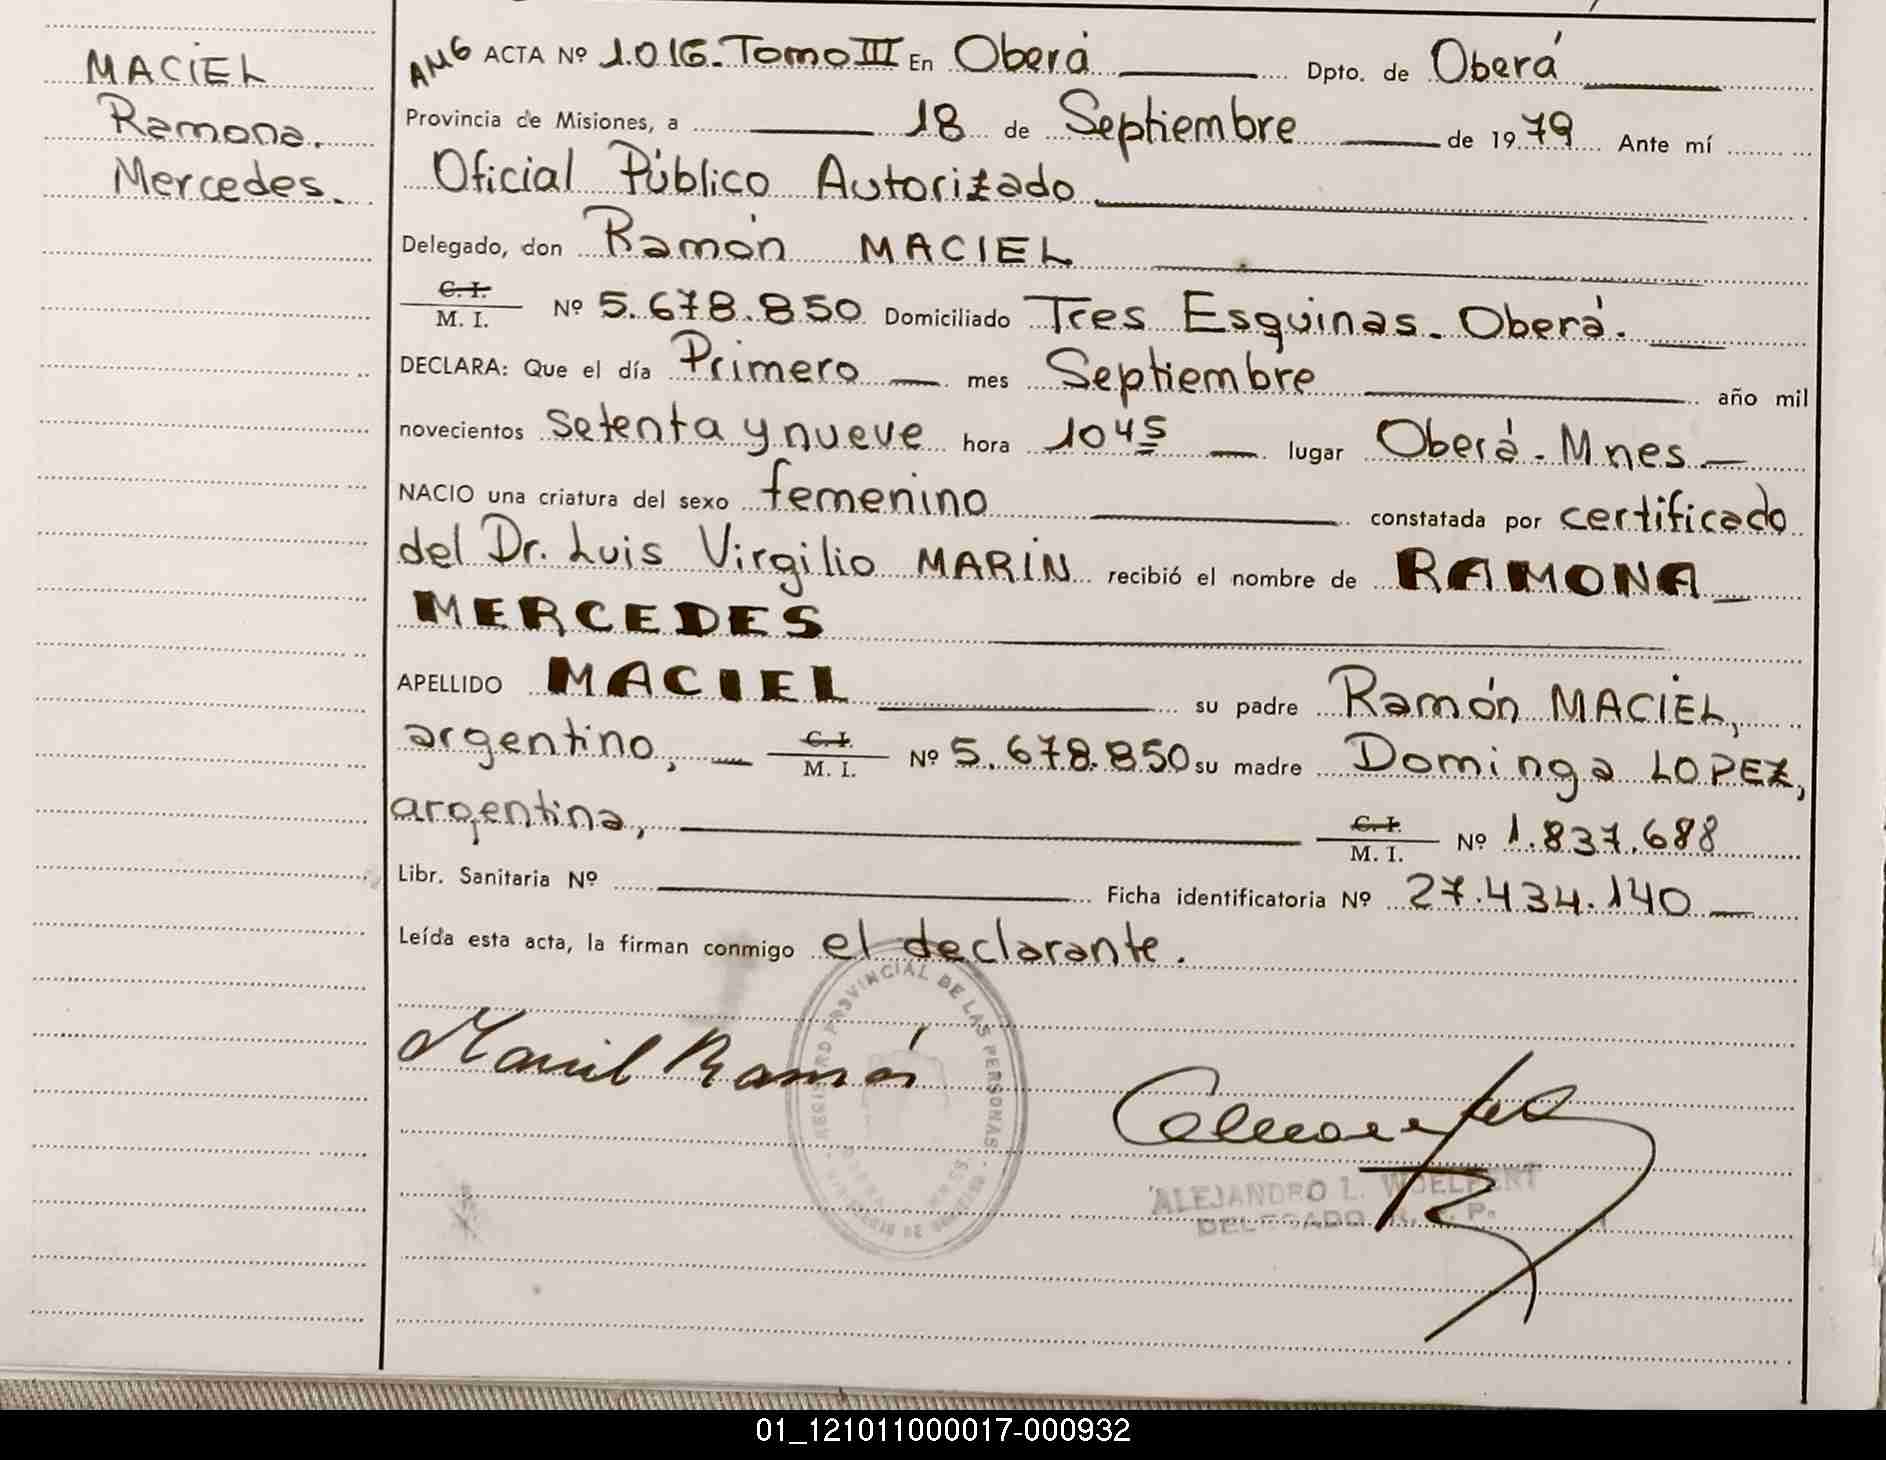 MACIEL
Ramona.
Mercedes.
AMG ACTA Nº 1.016. Tomo III En Oberá Dpto. de Oberá
Provincia de Misiones, a 18 de Septiembre de 1979 Ante mí
Oficial Público Autorizado
Delegado, don Ramón MACIEL
C. I.
M. I. Nº 5.678.850 Domiciliado Tres Esquinas - Oberá.
DECLARA: Que el día Primero mes Septiembre año mil
novecientos setenta y nueve hora 10 45 lugar Oberá - Mnes
NACIO una criatura del sexo femenino constatada por certificado
del Dr. Luis Virgilio MARIN recibió el nombre de RAMONA
MERCEDES
APELLIDO MACIEL su padre Ramón MACIEL,
argentino, C. I.
M. I. Nº 5.678.850 su madre Dominga LOPEZ,
argentina, C. I.
M. I. Nº 1.837.688
Libr. Sanitaria Nº Ficha identificatoria Nº 27.434.140
Leída esta acta, la firman conmigo el declarante.
REGISTRO PROVINCIAL DE LAS PERSONAS
Maciel Ramón
ALEJANDRO L. WOELFERT
DELEGADO R. P.
01_121011000017-000932